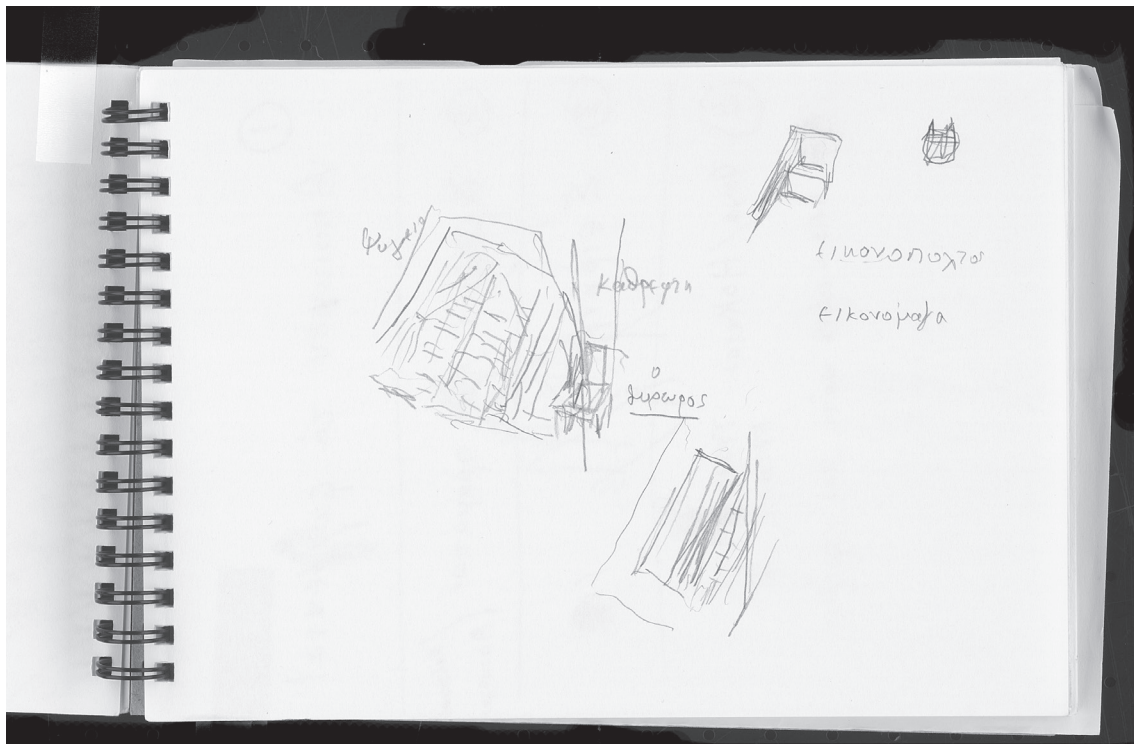 Ψυγείο
καθρεφτη
ο
θυρωρος
εικονοπολτοσ
εικονομαγα